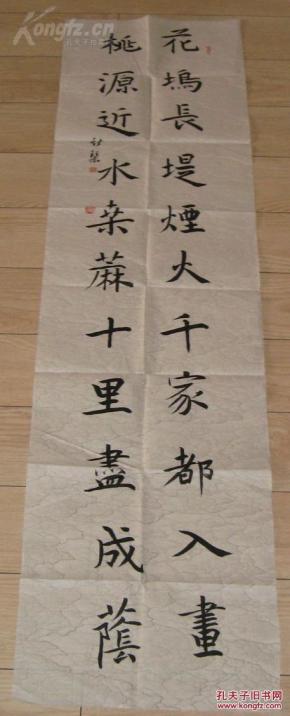 花塢長堤煙火千家都入畫
桃源近水桑蔴十里盡成蔭
Kongfz.com
孔夫子旧书网
孔夫子旧书网